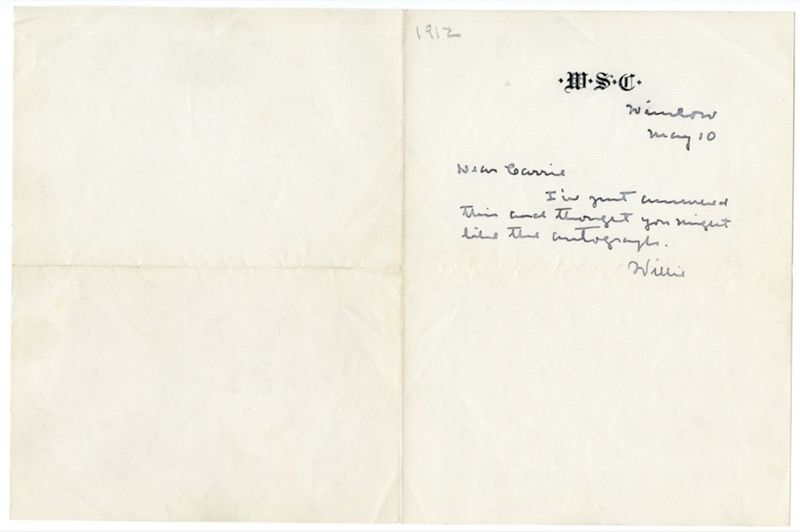 1912
·W·S·C·
Winslow
May 10
Dear Carrie
I've just answered
this and thought you might
like the autograph.
Willie